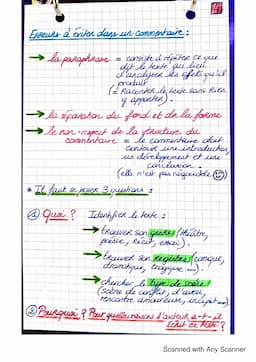 Erreurs à éviter dans un commentaire :
→ la paraphrase = consiste à répéter ce que
dit le texte au lieu
d'analyser les effets qu'il
produit
(= Raconter le texte sans rien
y apporter).
→ la séparation du fond et de la forme
→ le non-respect de la structure du
commentaire = le commentaire doit
contenir une introduction,
un développement et une
conclusion.
(elle n'est pas négociable
* Il faut se poser 3 questions :
① Quoi ? Identifier le texte :
→ trouver son genre (théâtre,
poésie, récit, essai).
→ trouver son registre (comique,
dramatique, tragique ...).
→ chercher le type de scène
(scène de conflit, d'aveu,
rencontre amoureuse, incipit ...)
② Pourquoi ? Pour quelles raisons l'auteur a-t-il
écrit ce texte ?
Scanned with Any Scanner